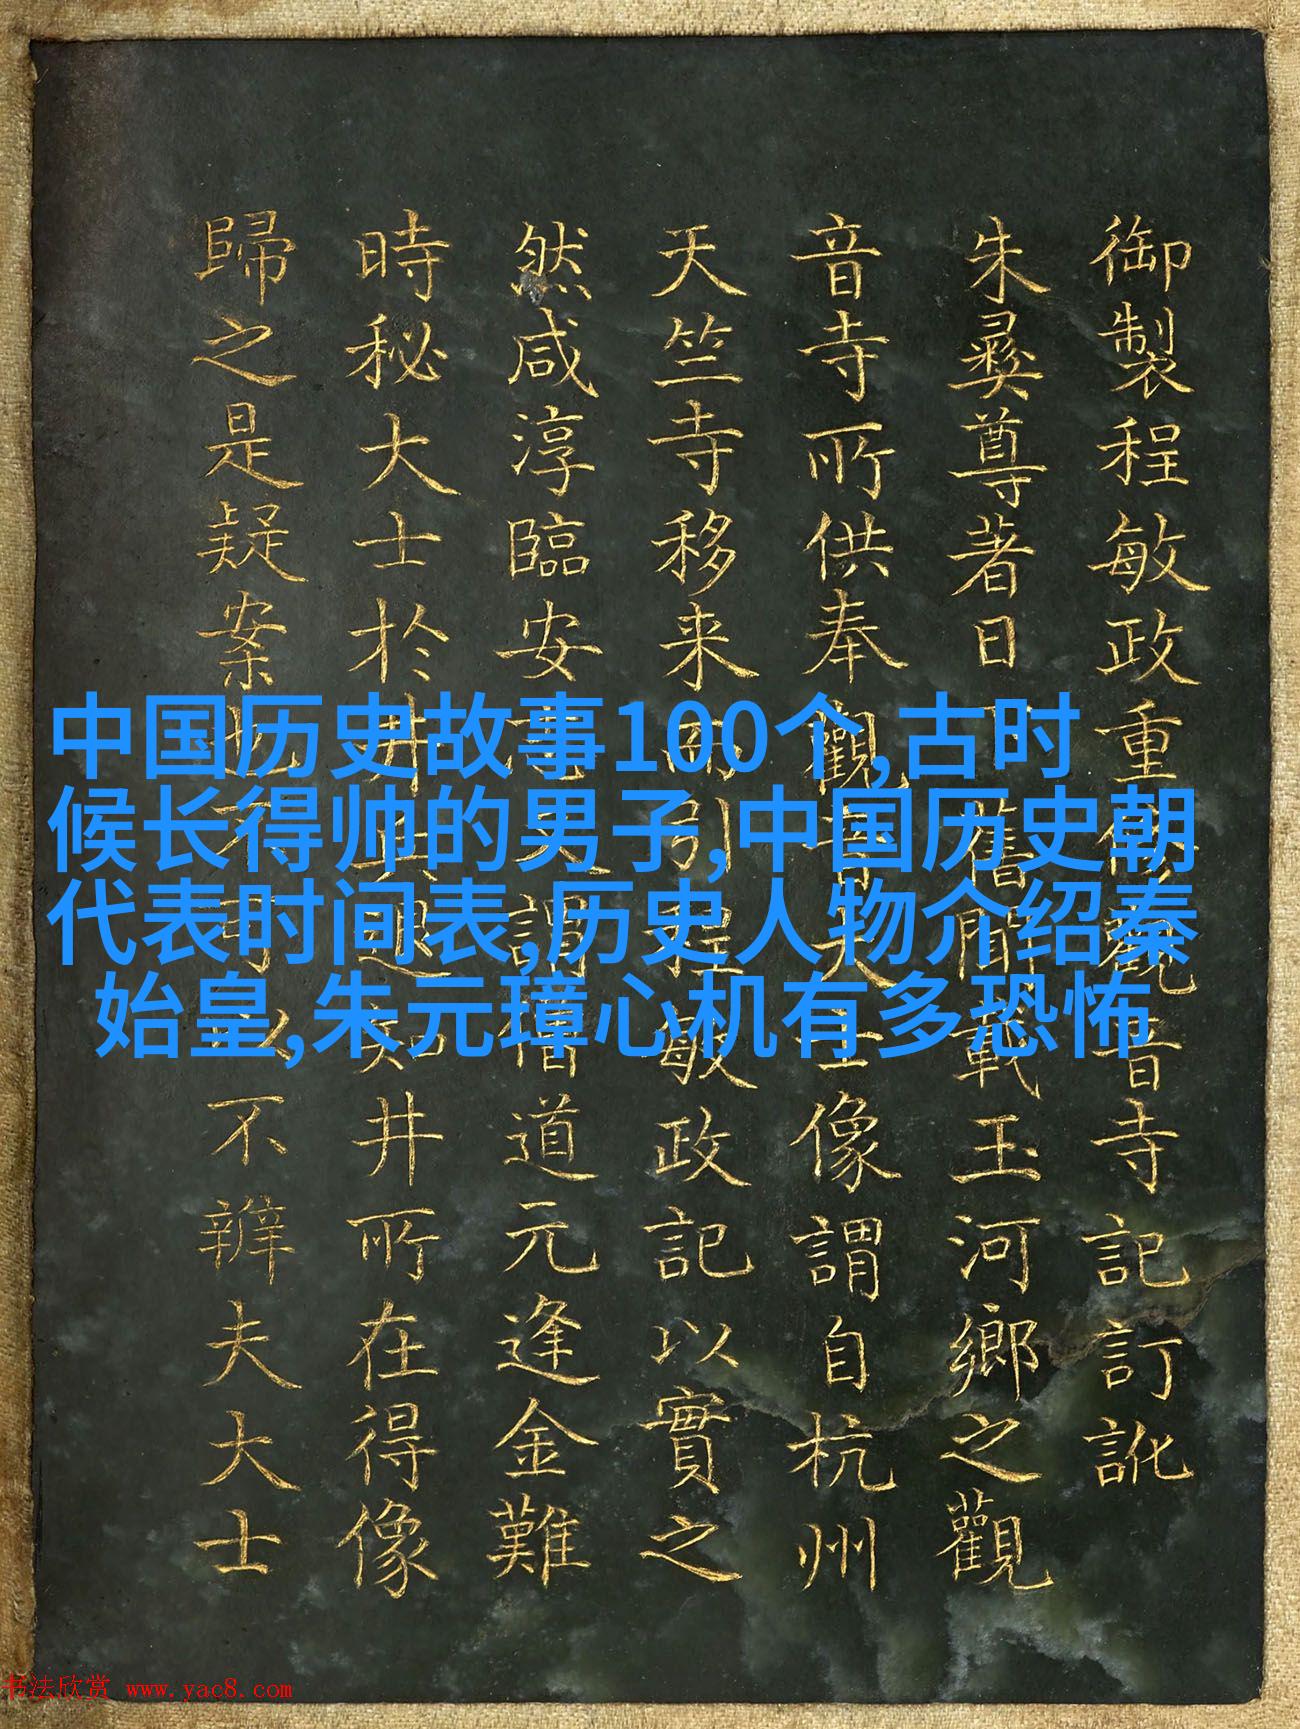 御製程敏政重修觀音寺記訂訛
朱彝尊著日下舊聞載玉河鄉之觀
音寺所供奉觀音大士像謂自杭州
天竺寺移来而引程敏政記以實之
然咸淳臨安謂僧道元逢金難
時秘大士於井兵退知井所在得像
歸之是疑案也不可以不辨夫大士
中国历史故事100个,古时
候长得帅的男子,中国历史朝
代表时间表,历史人物介绍秦
始皇,朱元璋心机有多恐怖
书法欣赏 www.yac8.com